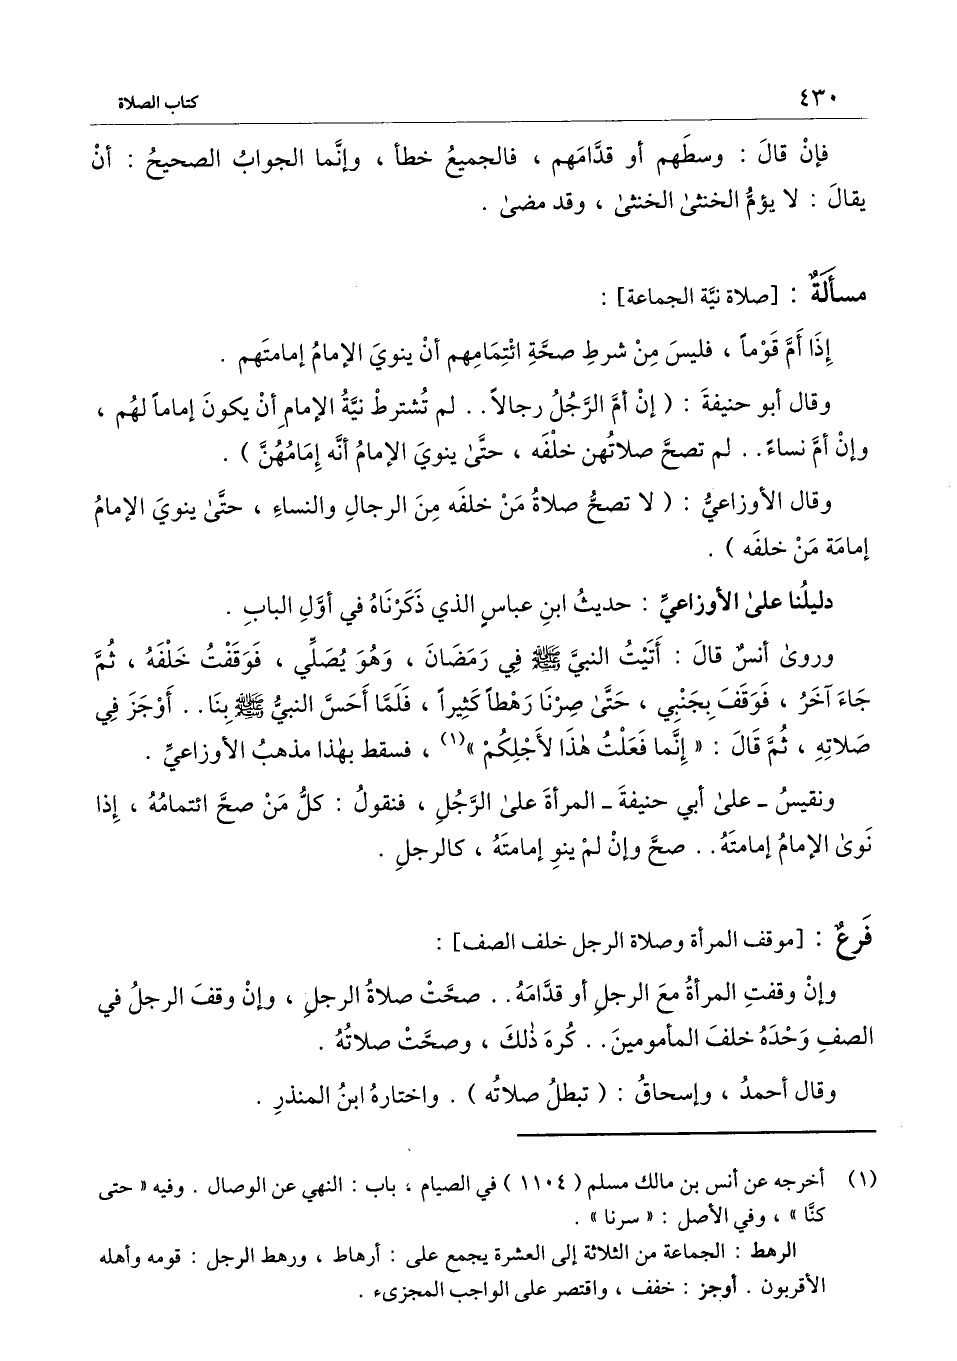 ٤٣٠
كتاب الصلاة
فإنْ قالَ : وسطَهم أو قدَّامَهم ، فالجميعُ خطأ ، وإنَّما الجوابُ الصحيحُ : أنْ
يقالَ : لا يؤمُّ الخنثىٰ الخنثىٰ ، وقد مضىٰ .
مسألَةٌ : [صلاة نيَّة الجماعة] :
إذَا أمَّ قَوْماً ، فليسَ مِنْ شرطِ صحَّةِ ائْتِمَامِهم أنْ ينويَ الإمامُ إمامتَهم .
وقال أبو حنيفةَ : ( إنْ أمَّ الرَّجُلُ رجالاً . . لم تُشترطْ نيَّةُ الإمامِ أنْ يكونَ إماماً لهُم ،
وإنْ أمَّ نساءً . . لم تصحَّ صلاتُهن خلْفَه ، حتَّىٰ ينويَ الإمامُ أنَّه إمَامُهُنَّ ) .
وقال الأوزاعيُّ : ( لا تصحُّ صلاةُ مَنْ خلفَه مِنَ الرجالِ والنساءِ ، حتَّىٰ ينويَ الإمامُ
إمامَة مَنْ خلفَه ) .
دليلُنا علىٰ الأوزاعيِّ : حديثُ ابنِ عباسٍ الذي ذَكَرْنَاهُ في أوَّلِ البابِ .
وروىٰ أنسٌ قالَ : أَتَيْتُ النبيَّ ﷺ فِي رَمَضَانَ ، وَهُوَ يُصَلِّي ، فَوَقَفْتُ خَلْفَهُ ، ثُمَّ
جَاءَ آخَرُ ، فَوَقَفَ بِجَنْبِي ، حَتَّىٰ صِرْنَا رَهْطاً كَثِيراً ، فَلَمَّا أَحَسَّ النبيُّ ﷺ بِنَا . . أَوْجَزَ فِي
صَلاتِهِ ، ثُمَّ قَالَ : « إِنَّما فَعَلْتُ هٰذَا لأَجْلِكُمْ »(١) ، فسقط بهٰذا مذهبُ الأوزاعيِّ .
ونقيسُ ـ علىٰ أبي حنيفةَ ـ المرأةَ علىٰ الرَّجُلِ ، فنقولُ : كلُّ مَنْ صحَّ ائتمامُهُ ، إذَا
نَوىٰ الإمامُ إمامتَهُ . . صحَّ وإنْ لمْ ينوِ إمامتَهُ ، كالرجلِ .
فَرعٌ : [موقف المرأة وصلاة الرجل خلف الصف] :
وإنْ وقفتِ المرأةُ معَ الرجلِ أو قدَّامَهُ . . صحَّتْ صلاةُ الرجلِ ، وإنْ وقفَ الرجلُ في
الصفِ وَحْدَهُ خلفَ المأمومينَ . . كُرهَ ذٰلكَ ، وصحَّتْ صلاتُهُ .
وقال أحمدُ ، وإسحاقُ : ( تبطلُ صلاتُه ) . واختارهُ ابنُ المنذرِ .
(١) أخرجه عن أنس بن مالك مسلم ( ١١٠٤ ) في الصيام ، باب : النهي عن الوصال . وفيه « حتى
كنَّا » ، وفي الأصل : « سرنا » .
الرهط : الجماعة من الثلاثة إلى العشرة يجمع على : أرهاط ، ورهط الرجل : قومه وأهله
الأقربون . أوجز : خفف ، واقتصر على الواجب المجزىء .